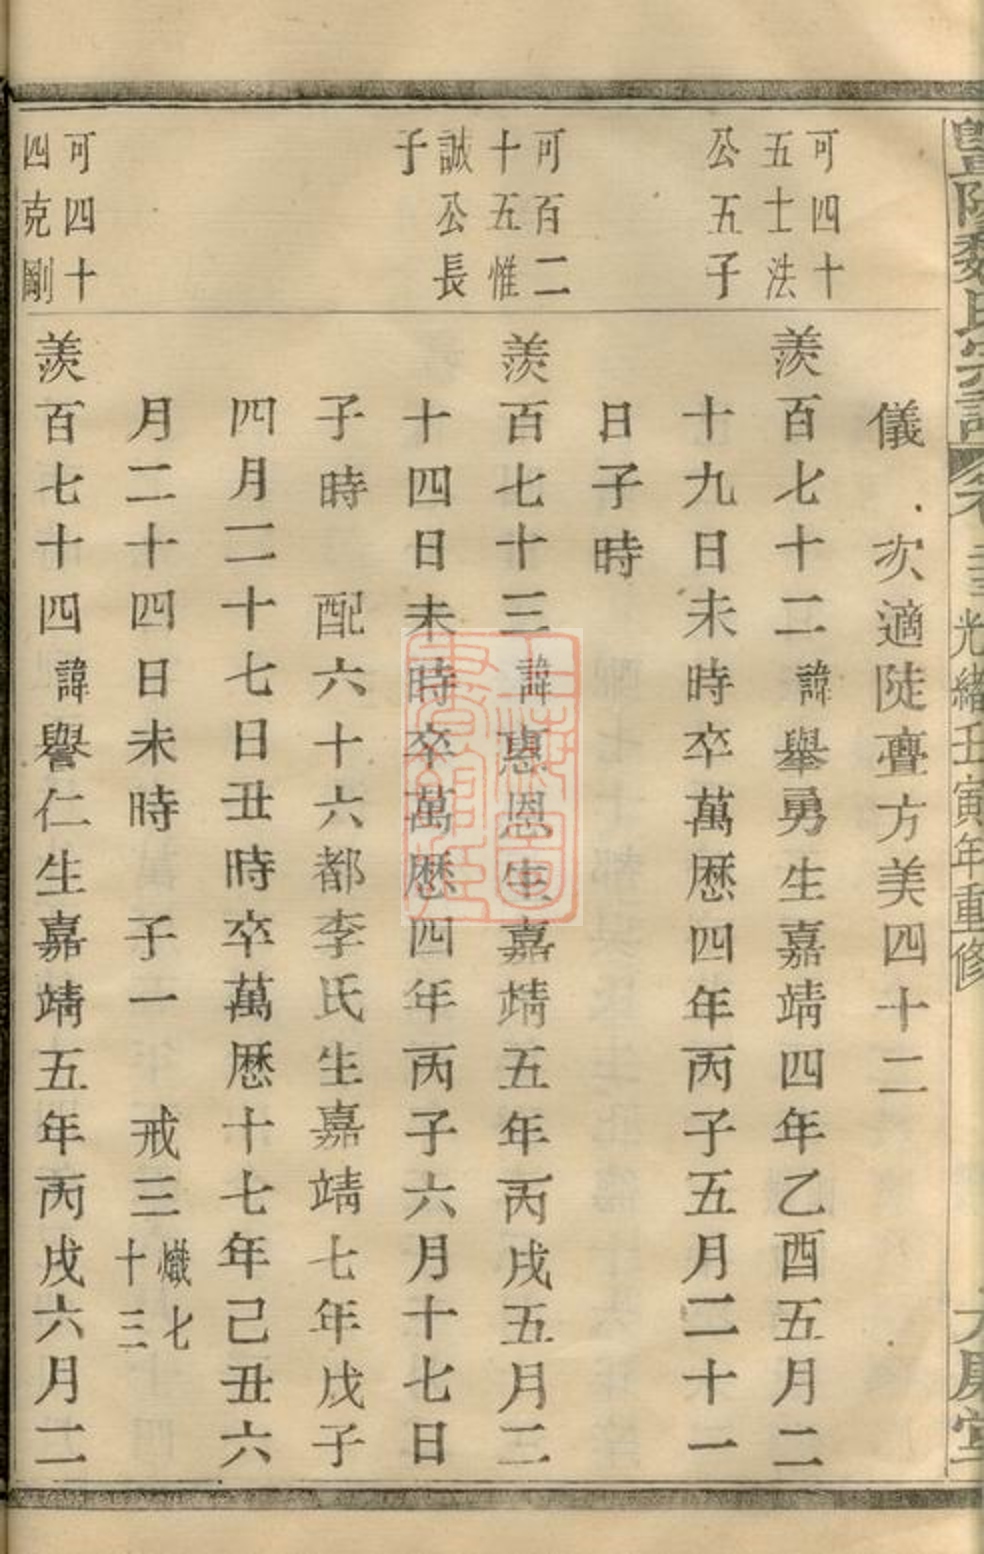 魏氏宗譜
光緒壬寅年重修
儀 次適陡亹方美四十二
可四十
五士法
公五子
羨百七十二諱舉勇生嘉靖四年乙酉五月二
十九日未時卒萬歷四年丙子五月二十一
日子時
可百二
十五惟
誠公長
子
羨百七十三諱惠恩生嘉靖五年丙戌五月二
十四日未時卒萬歷四年丙子六月十七日
子時 配六十六都李氏生嘉靖七年戊子
四月二十七日丑時卒萬歷十七年己丑六
月二十四日未時 子一 戒三熾七
十三
可四十
四克剛
羨百七十四諱譽仁生嘉靖五年丙戌六月二